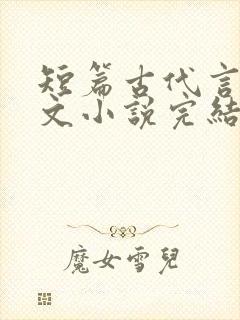 短篇古代言
文小說完結
魔女雪兒